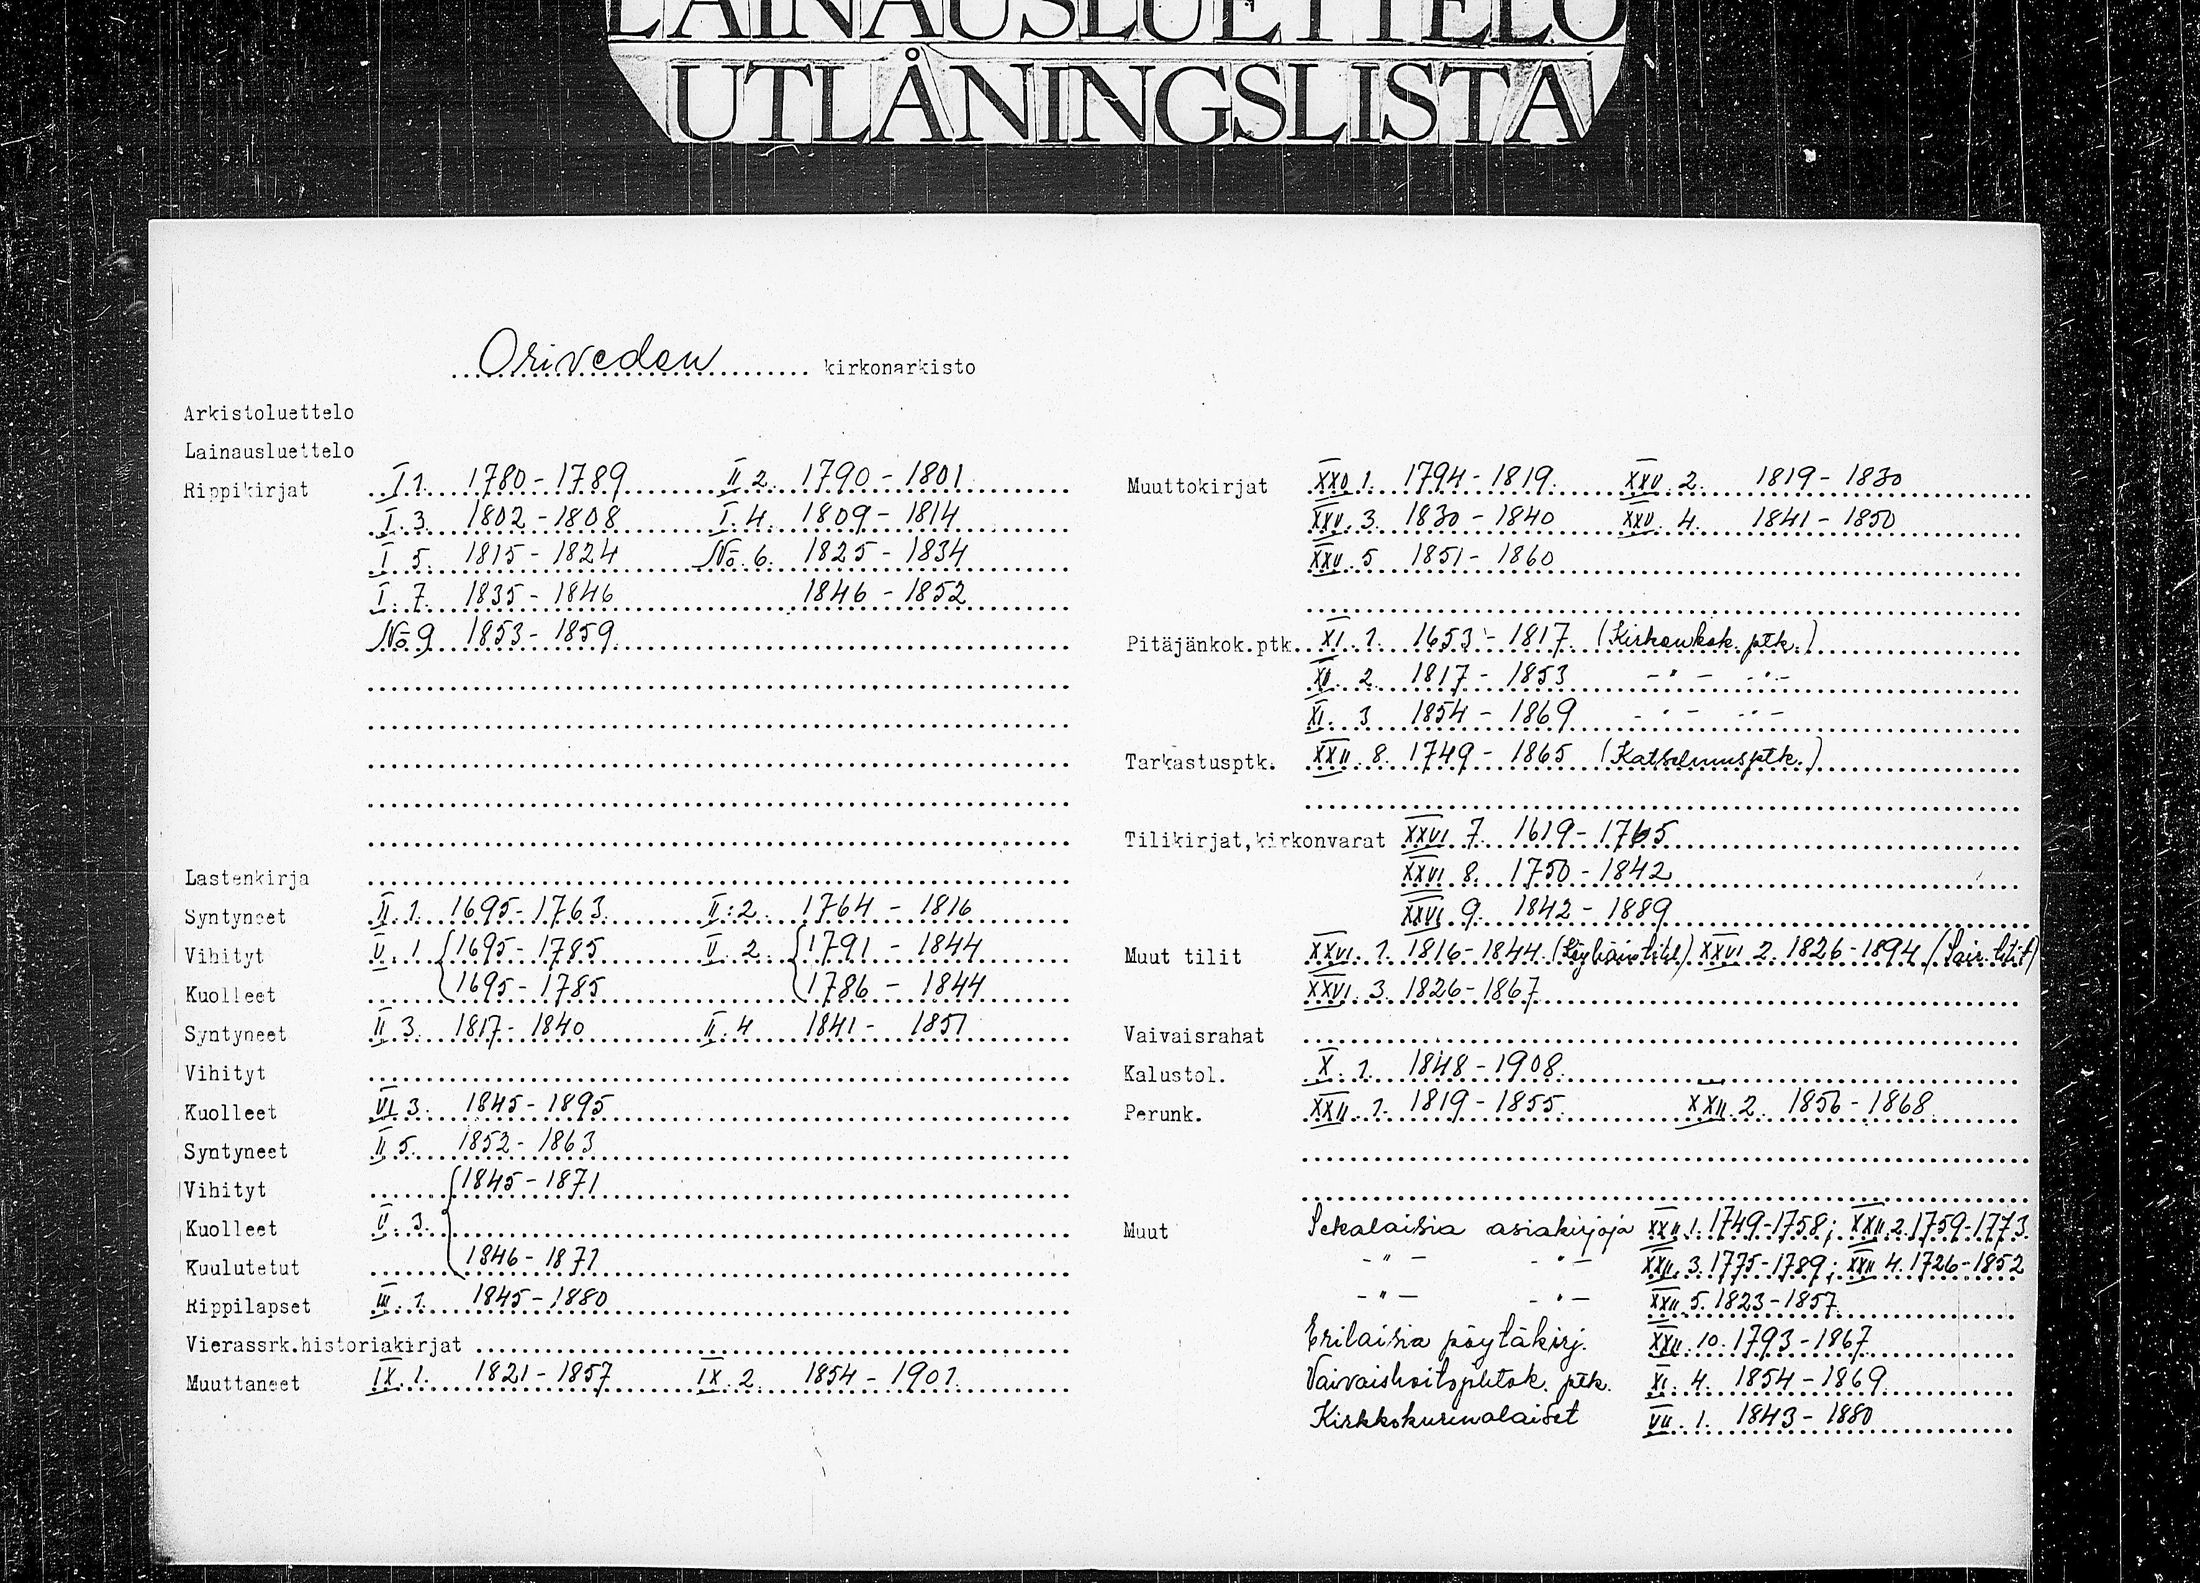 LAINAUSLUETTELO
UTLÅNINGSLISTA
Oriveden kirkonarkisto
Arkistoluettelo
Lainausluettelo
Rippikirjat I 1. 1780-1789 II 2. 1790-1801
I. 3. 1802-1808 I. 4. 1809-1814
I 5. 1815-1824 No. 6. 1825-1834
I. 7. 1835-1846 1846-1852
No 9 1853-1859
Lastenkirja
Syntyneet II. 1. 1695-1763 II. 2. 1764-1816
Vihityt V. 1 1695-1785 V. 2. 1791-1844
Kuolleet 1695-1785 1786-1844
Syntyneet II 3. 1817-1840 II. 4 1841-1851
Vihityt
Kuolleet VI 3. 1845-1895
Syntyneet II 5. 1852-1863
Vihityt 1845-1871
Kuolleet V. 3.
Kuulutetut 1846-1871
Rippilapset III. 1. 1845-1880
Vierassrk.historiakirjat
Muuttaneet IX. 1. 1821-1857 IX. 2. 1854-1901.
Muuttokirjat XXV 1. 1794-1819. XXV. 2. 1819-1830
XXV. 3. 1830-1840 XXV. 4. 1841-1850
XXV. 5 1851-1860
Pitäjänkok.ptk. XI. 1. 1653-1817 (Kirkonkok. ptk.)
XI. 2. 1817-1853 -"- -"-
XI. 3 1854-1869 -"- -"-
Tarkastusptk. XXII. 8. 1749-1865 (Katselmusptk.)
Tilikirjat,kirkonvarat XXVI. 7. 1619-1765
XXVI. 8. 1750-1842
XXVI. 9. 1842-1889
Muut tilit XXVI. 1. 1816-1844 XXVI 2. 1826-1894
XXVI. 3. 1826-1867
Vaivaisrahat
Kalustol. X. 1. 1848-1908.
Perunk. XXII. 1. 1819-1855. XXII. 2. 1856-1868
Muut Sekalaisia asiakirjoja XXII. 1. 1749-1758; XXII. 2. 1759-1773.
-"- -"- XXII. 3. 1775-1789; XXII 4. 1726-1852
-"- -"- XXII. 5. 1823-1857
Erilaisia pöytäkirj. XXII. 10. 1793-1867
Vaivaishoitojohtok. ptk. XI. 4. 1854-1869
Kirkkokurinalaiset VII. 1. 1843-1880